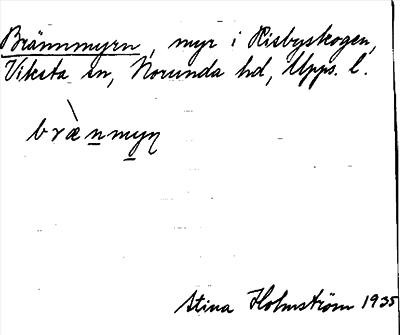 Brännmyrn, myr i Risbyskogen,
Viksta sn, Norunda hd, Upps. l.
bræ̀n̲m̲yɳ
Stina Holmström 1935